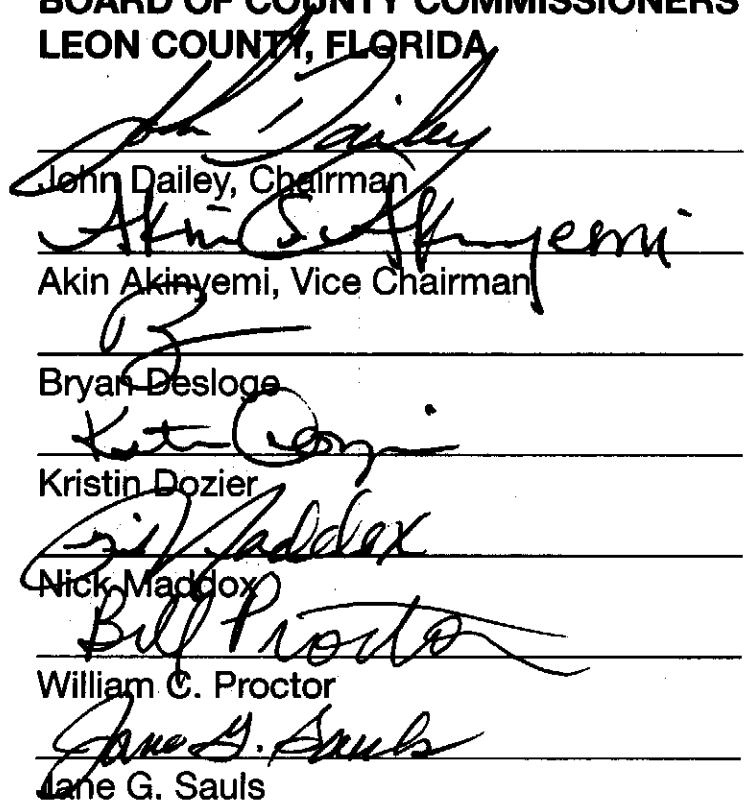 BOARD OF COUNTY COMMISSIONERS
LEON COUNTY, FLORIDA
John Dailey
John Dailey, Chairman
Akin S. Akinyemi
Akin Akinyemi, Vice Chairman
Bryan Desloge
Kristin Dozier
Maddox
Nick Maddox
Bill Proctor
William C. Proctor
Jane G. Sauls
Jane G. Sauls